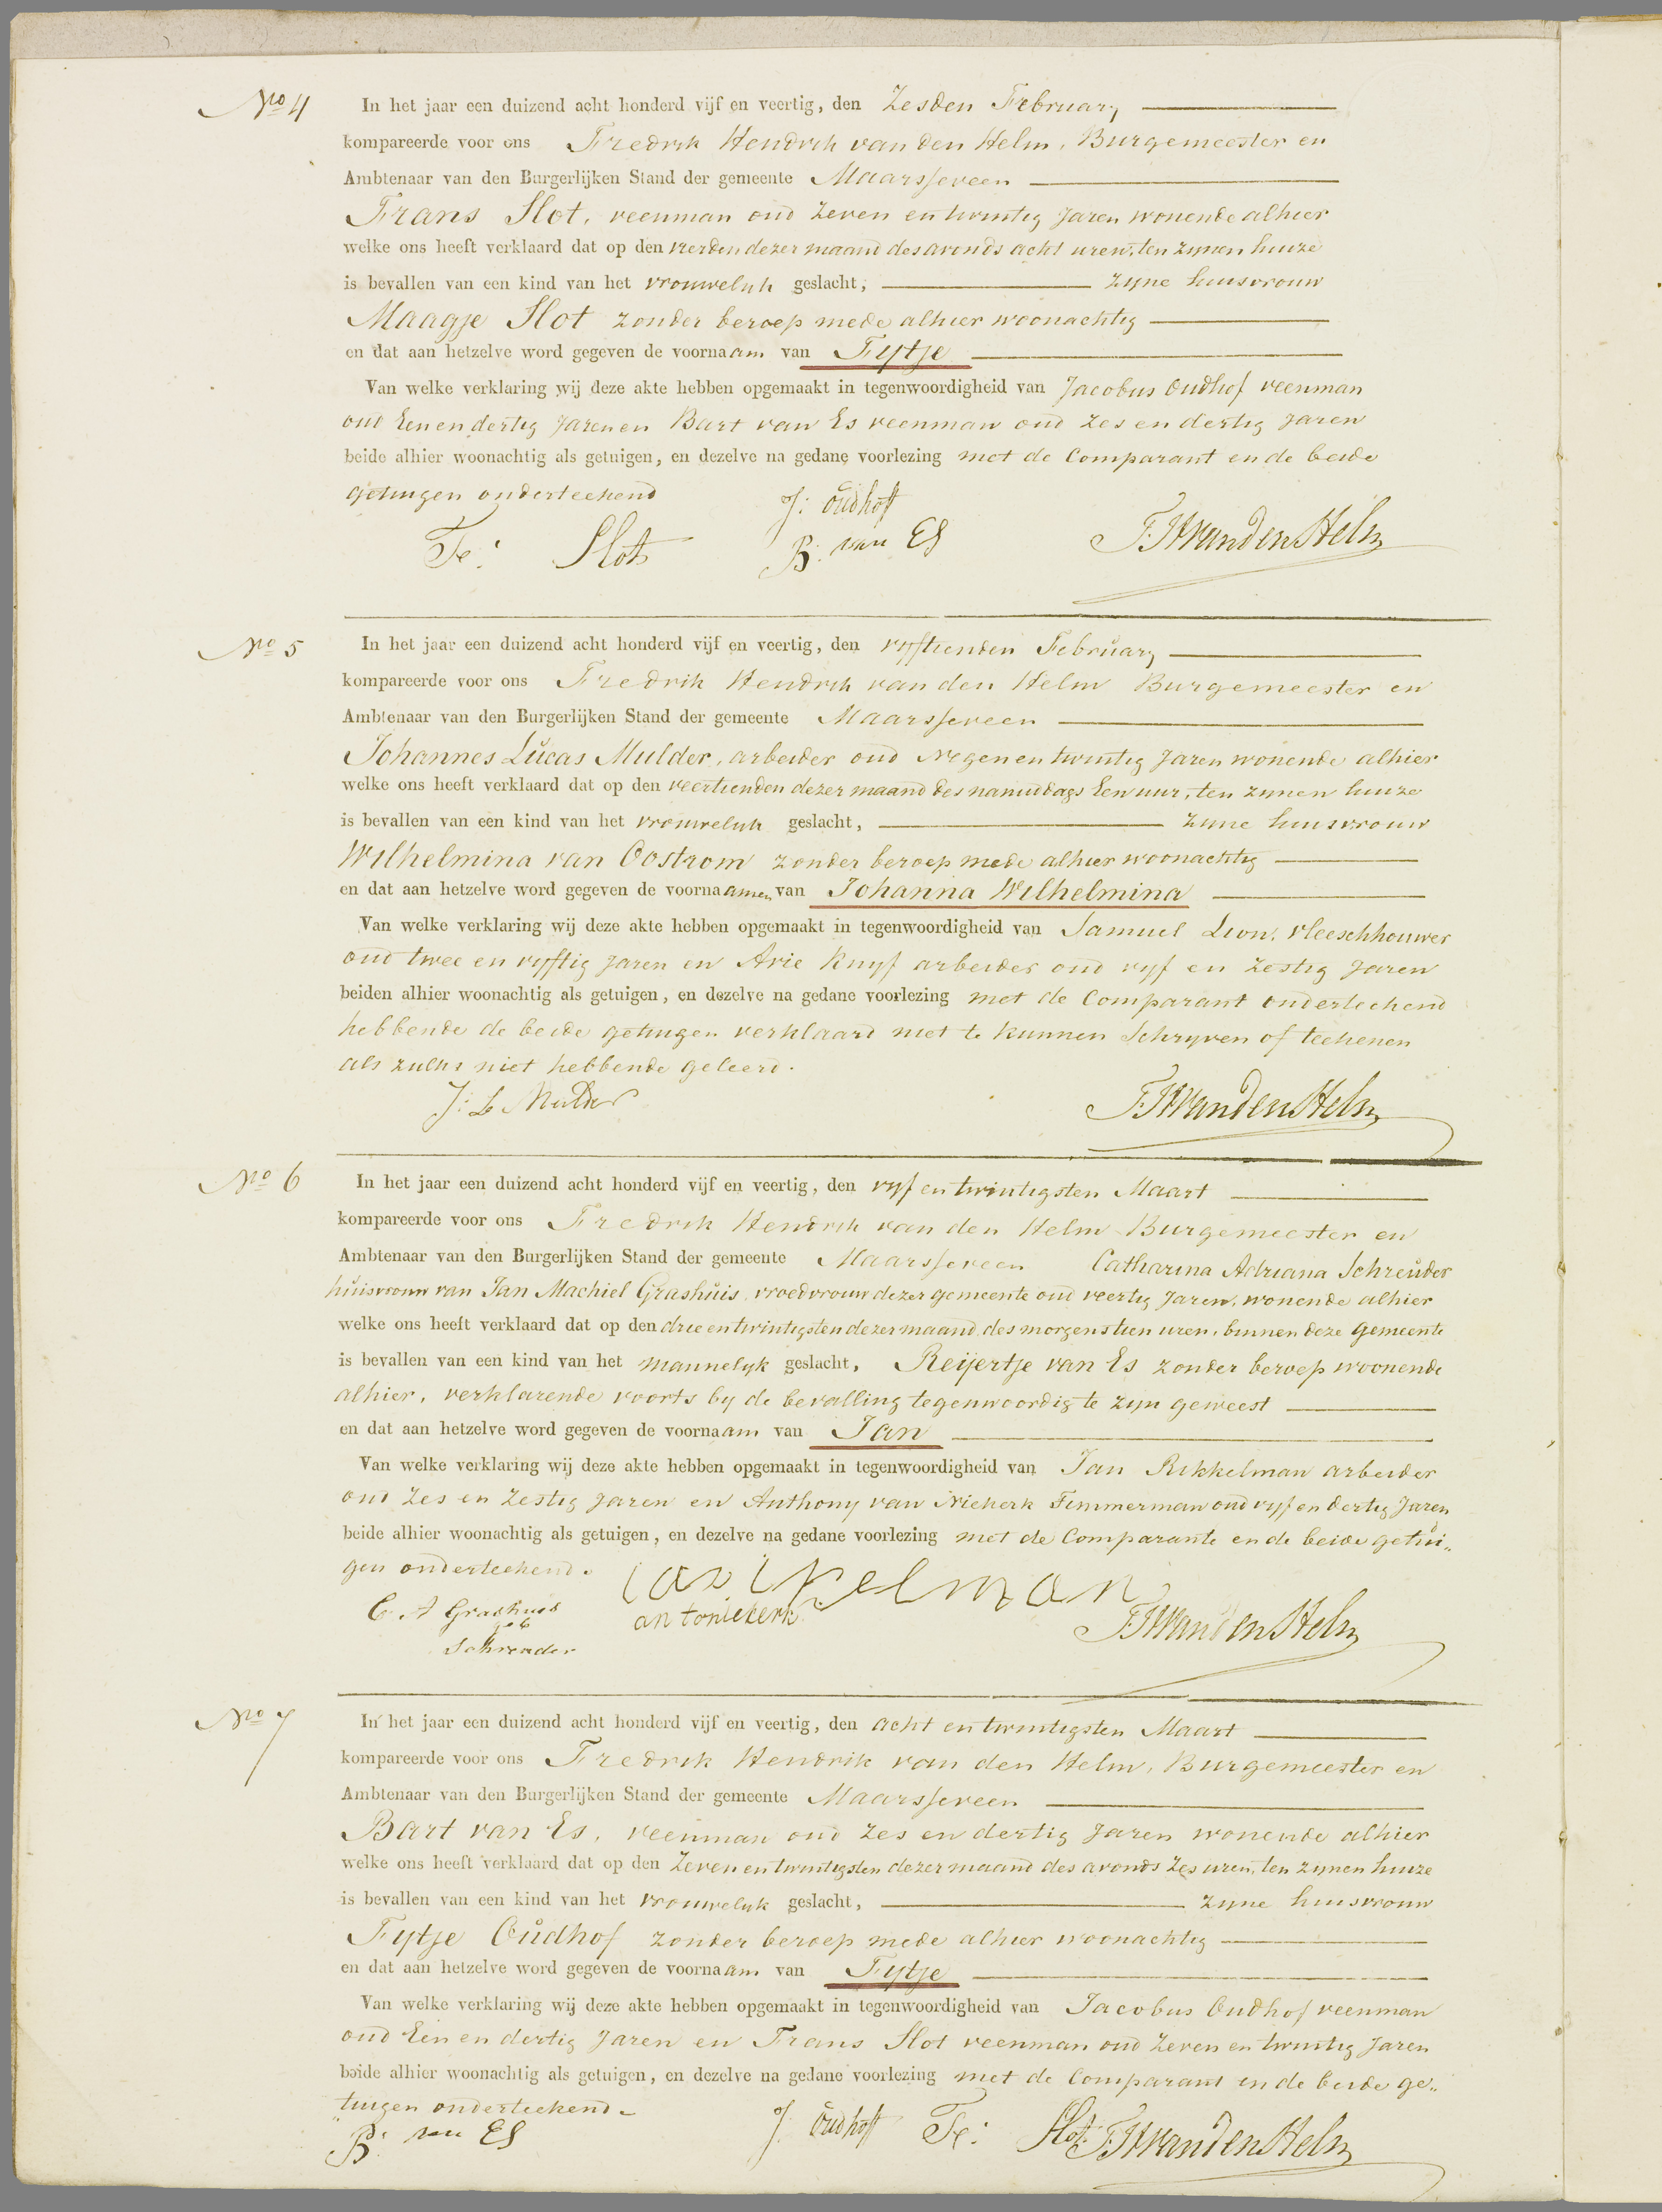 No 4
In het jaar een duizend acht honderd vijf en veertig, den Zesden February
kompareerde voor ons Fredrik Hendrik van den Helm, Burgemeester en
Ambtenaar van den Burgerlijken Stand der gemeente Maarsseveen
Frans Slot, veenman oud Zeven en twintig Jaren wonende alhier
welke ons heeft verklaard dat op den vierden dezer maand des avonds acht uren, ten zynen huize
is bevallen van een kind van het vrouwelyk geslacht, zyne huisvrouw
Maagje Slot zonder beroep mede alhier woonachtig
en dat aan hetzelve word gegeven de voornaam van Fytje
Van welke verklaring wij deze akte hebben opgemaakt in tegenwoordigheid van Jacobus Oudhof veenman
oud Een en dertig Jaren en Bart van Es veenman oud Zes en dertig Jaren
beide alhier woonachtig als getuigen, en dezelve na gedane voorlezing met de Comparant en de beide
getuigen onderteekend
J: Oudhof
Fr: Slot B: van ES FHvandenHelm
No 5
In het jaar een duizend acht honderd vijf en veertig, den vyftienden February
kompareerde voor ons Fredrik Hendrik van den Helm Burgemeester en
Ambtenaar van den Burgerlijken Stand der gemeente Maarsseveen
Johannes Lucas Mulder, arbeider oud Negen en twintig Jaren wonende alhier
welke ons heeft verklaard dat op den veertienden dezer maand des namiddags Een uur, ten zynen huize
is bevallen van een kind van het vrouwelyk geslacht, zyne huisvrouw
Wilhelmina van Oostrom zonder beroep mede alhier woonachtig
en dat aan hetzelve word gegeven de voornaamen van Johanna Wilhelmina
Van welke verklaring wij deze akte hebben opgemaakt in tegenwoordigheid van Samuel Lion, vleeschhouwer
oud twee en vyftig Jaren en Arie Knyf arbeider oud vyf en Zestig Jaren
beiden alhier woonachtig als getuigen, en dezelve na gedane voorlezing met de Comparant onderteekend
hebbende de beide getuigen verklaard niet te kunnen Schryven of teekenen
als zulks niet hebbende geleerd.
J: L Mulder FHvandenHelm
No 6
In het jaar een duizend acht honderd vijf en veertig, den vyf en twintigsten Maart
kompareerde voor ons Fredrik Hendrik van den Helm Burgemeester en
Ambtenaar van den Burgerlijken Stand der gemeente Maarsseveen Catharina Adriana Schreuder
huisvrouw van Jan Machiel Grashuis, vroedvrouw dezer gemeente oud veertig Jaren, wonende alhier
welke ons heeft verklaard dat op den drie en twintigsten dezer maand des morgens tien uren, binnen deze Gemeente
is bevallen van een kind van het mannelyk geslacht, Reijertje van Es zonder beroep woonende
alhier, verklarende voorts by de bevalling tegenwoordig te zyn geweest
en dat aan hetzelve word gegeven de voornaam van Jan
Van welke verklaring wij deze akte hebben opgemaakt in tegenwoordigheid van Jan Rikkelman arbeider
oud Zes en Zestig Jaren en Anthony van Niekerk Timmerman oud vyf en dertig Jaren
beide alhier woonachtig als getuigen, en dezelve na gedane voorlezing met de Comparante en de beide getui„
gen onderteekend.
C A Grashuis
antoniekerk
Schreuder FHvandenHelm
No 7
In het jaar een duizend acht honderd vijf en veertig, den acht en twintigsten Maart
kompareerde voor ons Fredrik Hendrik van den Helm, Burgemeester en
Ambtenaar van den Burgerlijken Stand der gemeente Maarsseveen
Bart van Es, veenman oud Zes en dertig Jaren wonende alhier
welke ons heeft verklaard dat op den Zeven en twintigsten dezer maand des avonds Zes uren, ten zynen huize
is bevallen van een kind van het vrouwelyk geslacht, zyne huisvrouw
Fytje Oudhof zonder beroep mede alhier woonachtig
en dat aan hetzelve word gegeven de voornaam van Fytje
Van welke verklaring wij deze akte hebben opgemaakt in tegenwoordigheid van Jacobus Oudhof veenman
oud Een en dertig Jaren en Frans Slot veenman oud Zeven en twintig Jaren
beide alhier woonachtig als getuigen, en dezelve na gedane voorlezing met de Comparant en de beide ge„
tuigen onderteekend
B: van ES J: Oudhof Fr: Slot FHvandenHelm